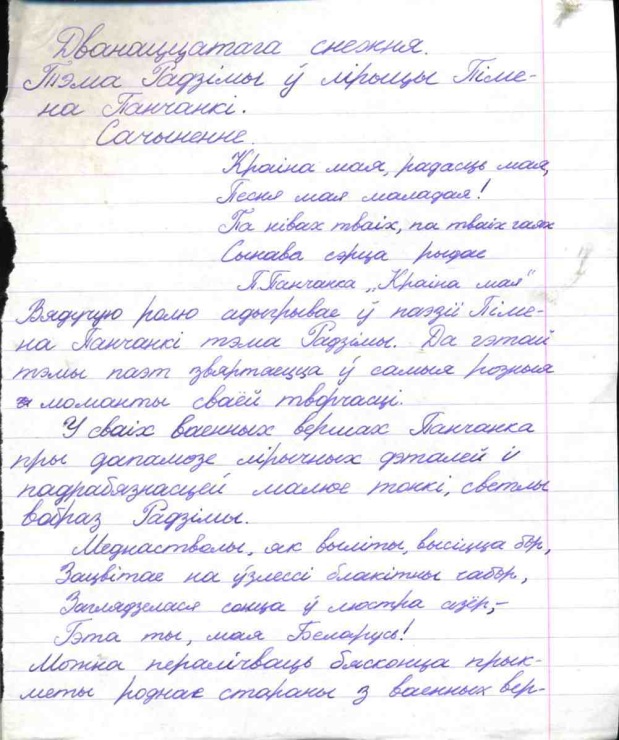 Дванаццатага снежня.
Тэма Радзімы ў лірыцы Піме-
на Панчанкі.
Сачыненне.
Краіна мая, радасць мая,
Песня мая маладая!
Па нівах тваіх, па тваіх гаях
Сынава сэрца рыдае
П.Панчанка „Краіна мая"
Вядучую ролю адыгрывае ў паэзіі Піме-
на Панчанкі тэма Радзімы. Да гэтай
тэмы паэт звяртаецца ў самыя розныя
моманты сваёй творчасці.
У сваіх ваенных вершах Панчанка
пры дапамозе лірычных дэталей і
падрабязнасцей малюе тонкі, светлы
вобраз Радзімы.
Меднастволы, як выліты, высіцца бор,
Зацвітае на ўзлессі блакітны чабор,
Загляделася сонца ў люстра азёр,–
Гэта ты, мая Беларусь!
Можна пералічваць бясконца прык-
меты роднае стараны з ваенных вер-